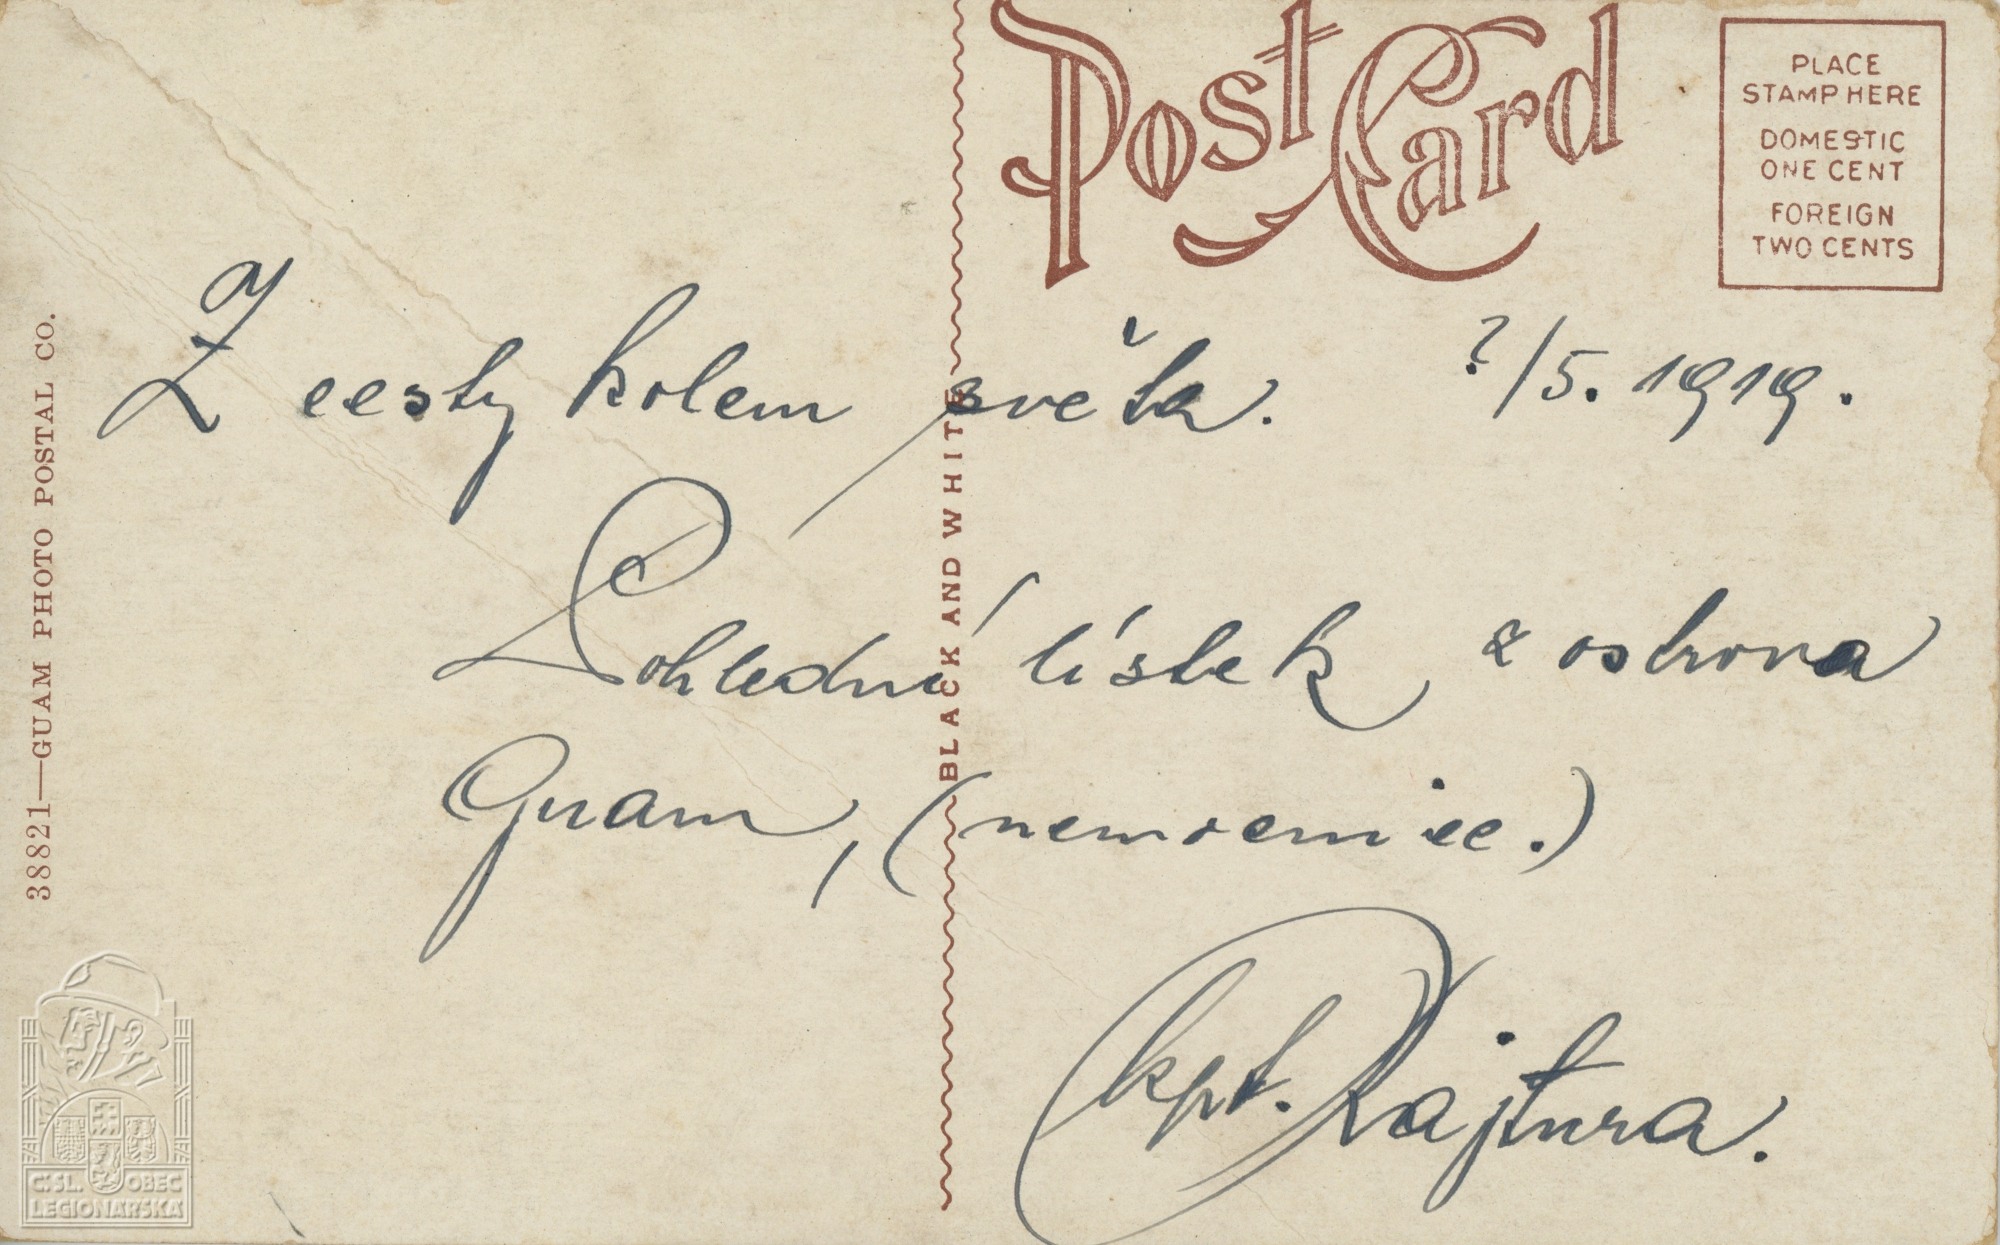 Post Card
PLACE
STAMP HERE
DOMESTIC
ONE CENT
FOREIGN
TWO CENTS
38821—GUAM PHOTO POSTAL CO.
BLACK AND WHITE
Z cesty kolem světa. ?/5. 1919.
Pohlední lístek z ostrova
Guam, (nemocnice.)
kpt. Rajtura.
Č.SL. OBEC
LEGIONÁŘSKÁ